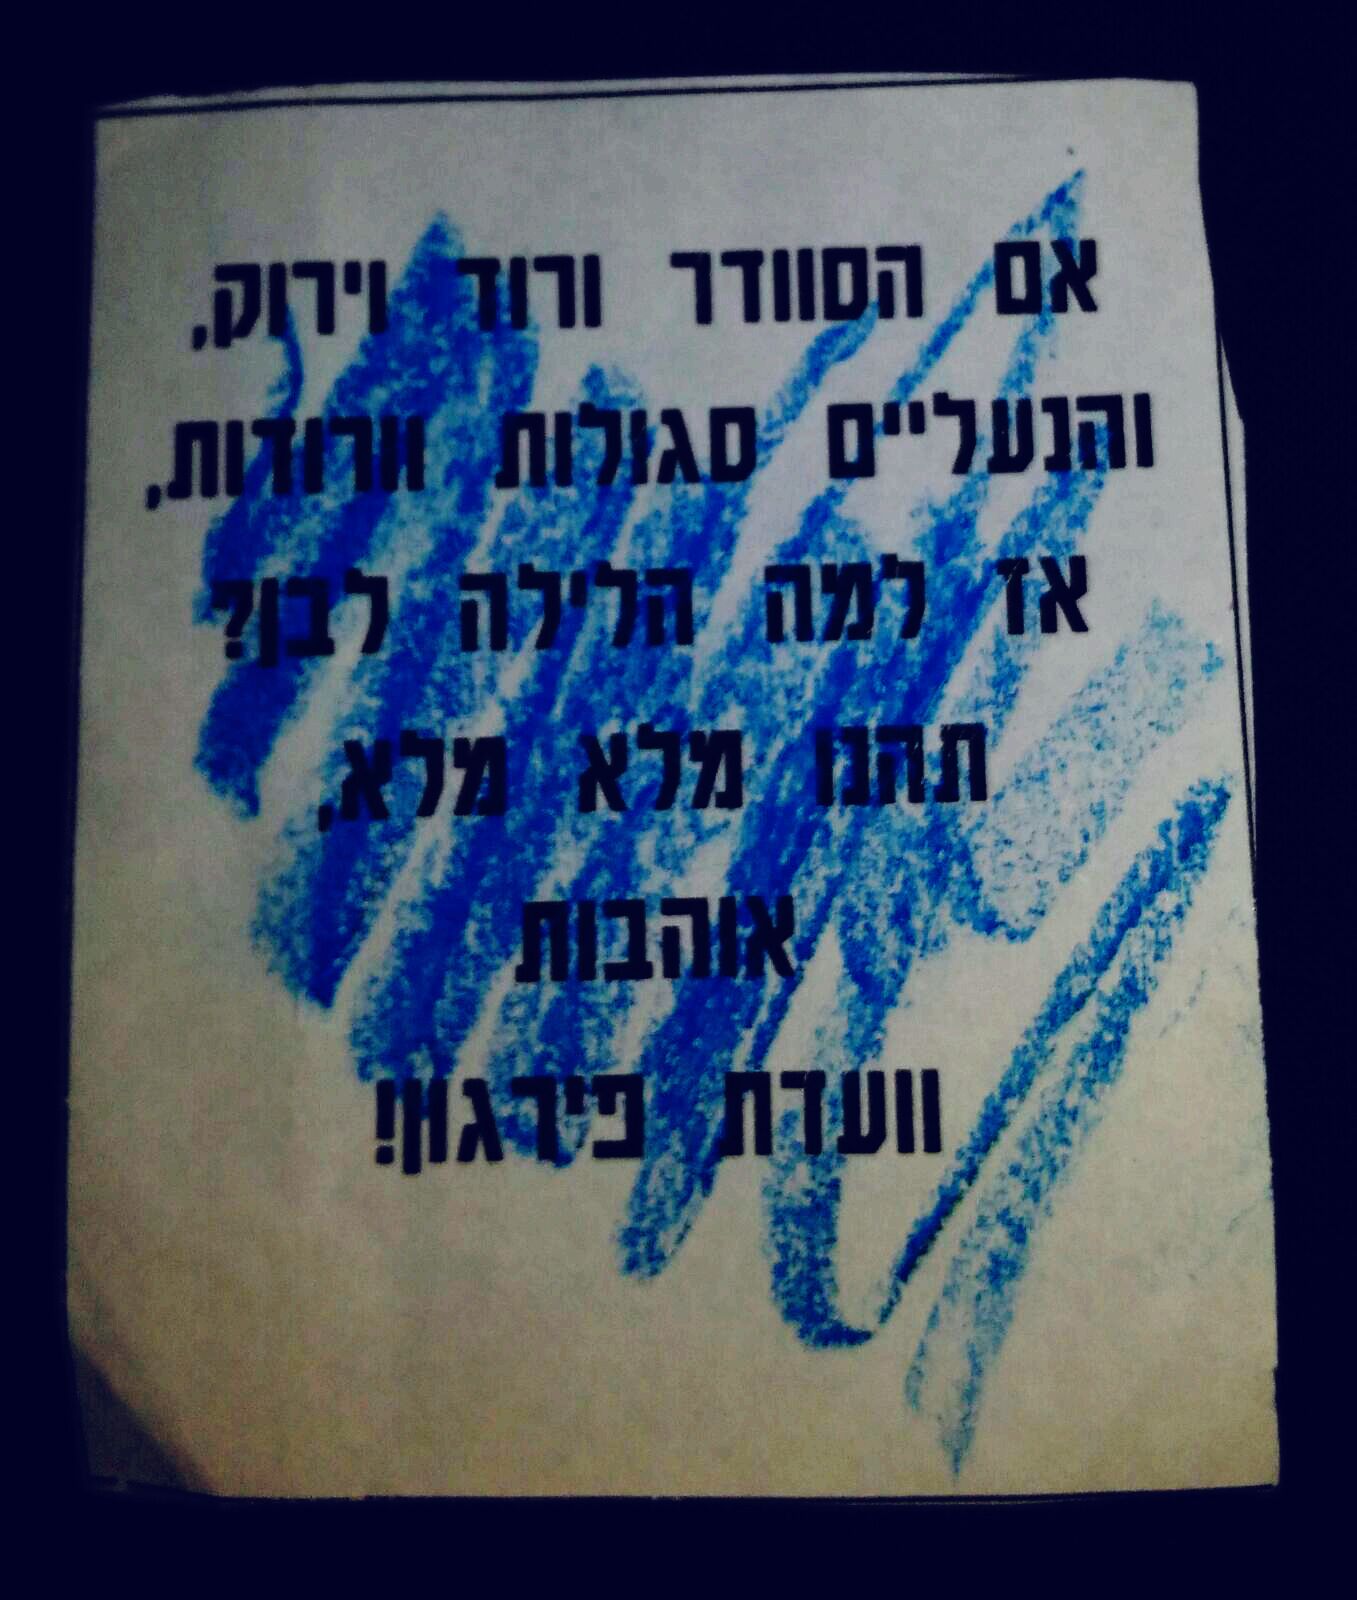 אם הסוודר ורוד וירוק,
והנעליים סגולות וורודות,
אז למה הלילה לבן?
תהנו מלא מלא,
אוהבות
וועדת פירגון!